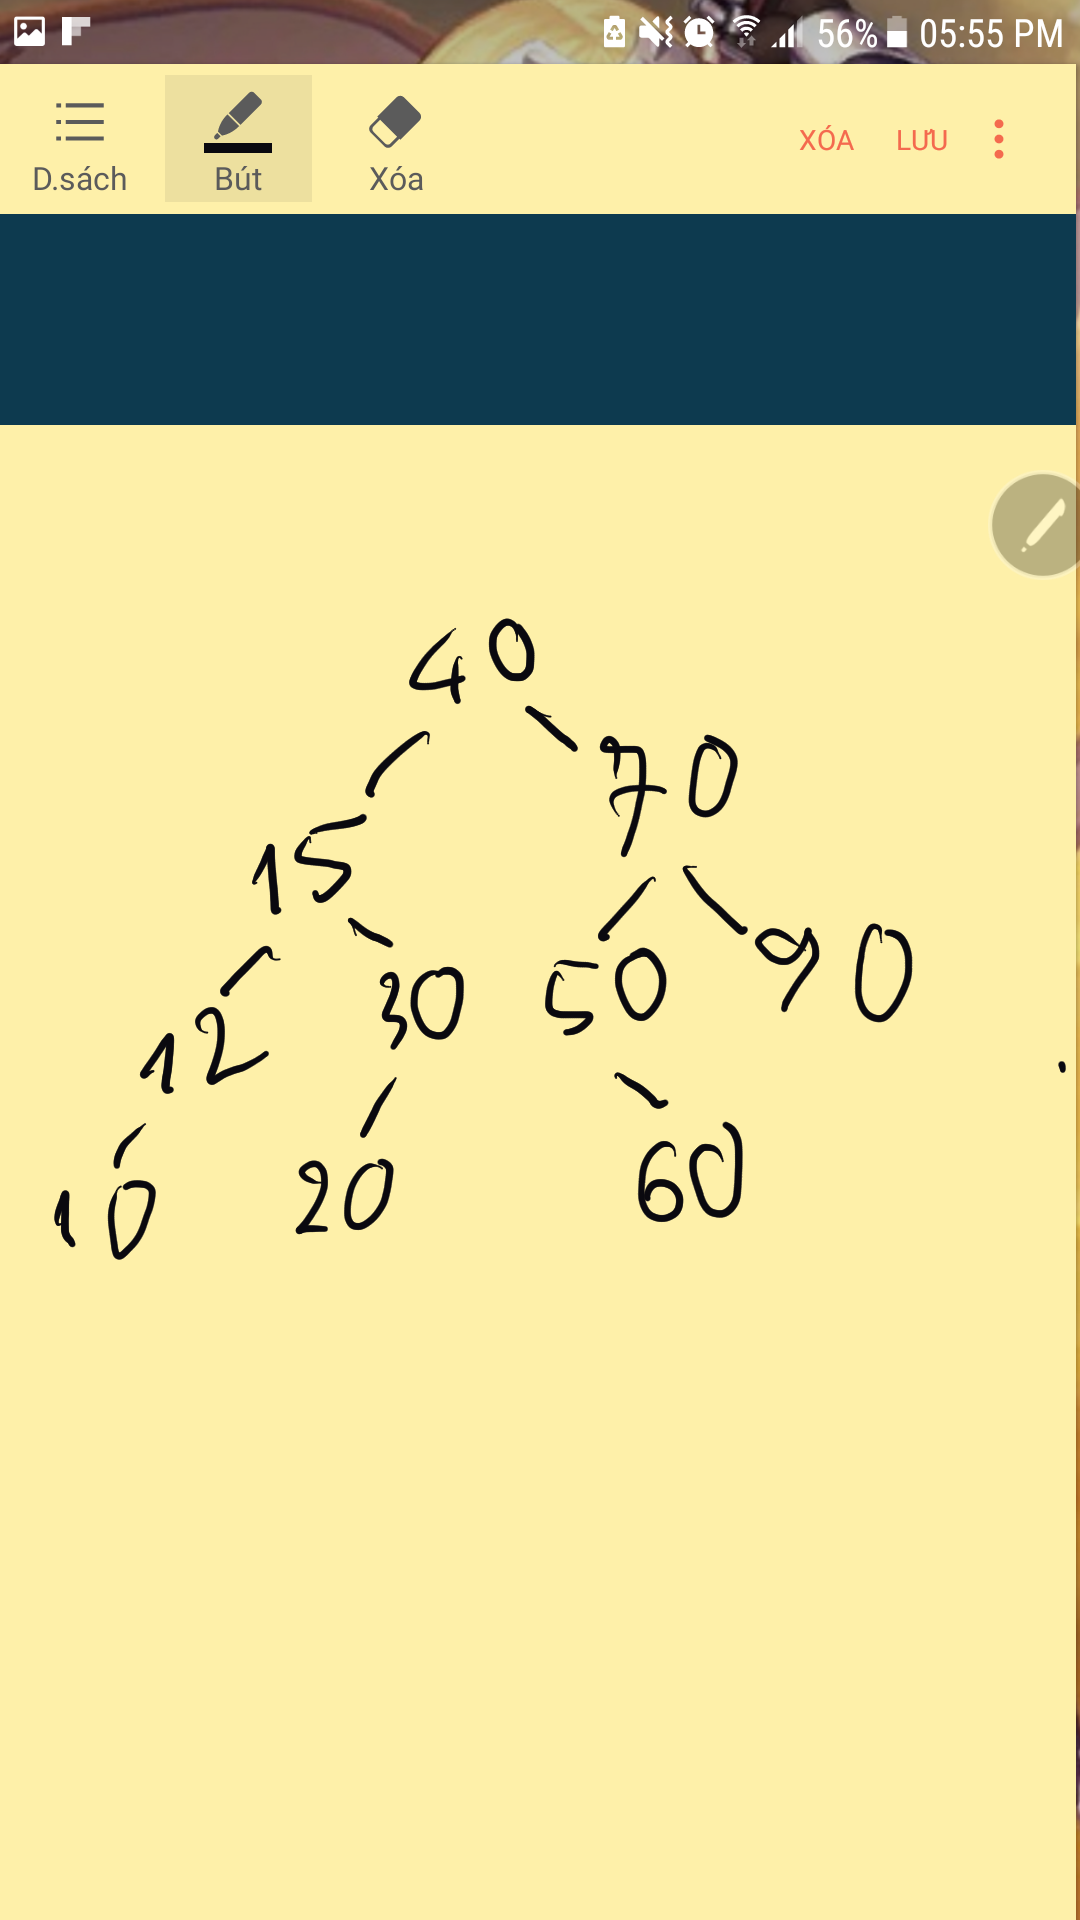 56% 05:55 PM
D.sách Bút Xóa XÓA LƯU
40
70
15
90
30 50
12
10 20 60